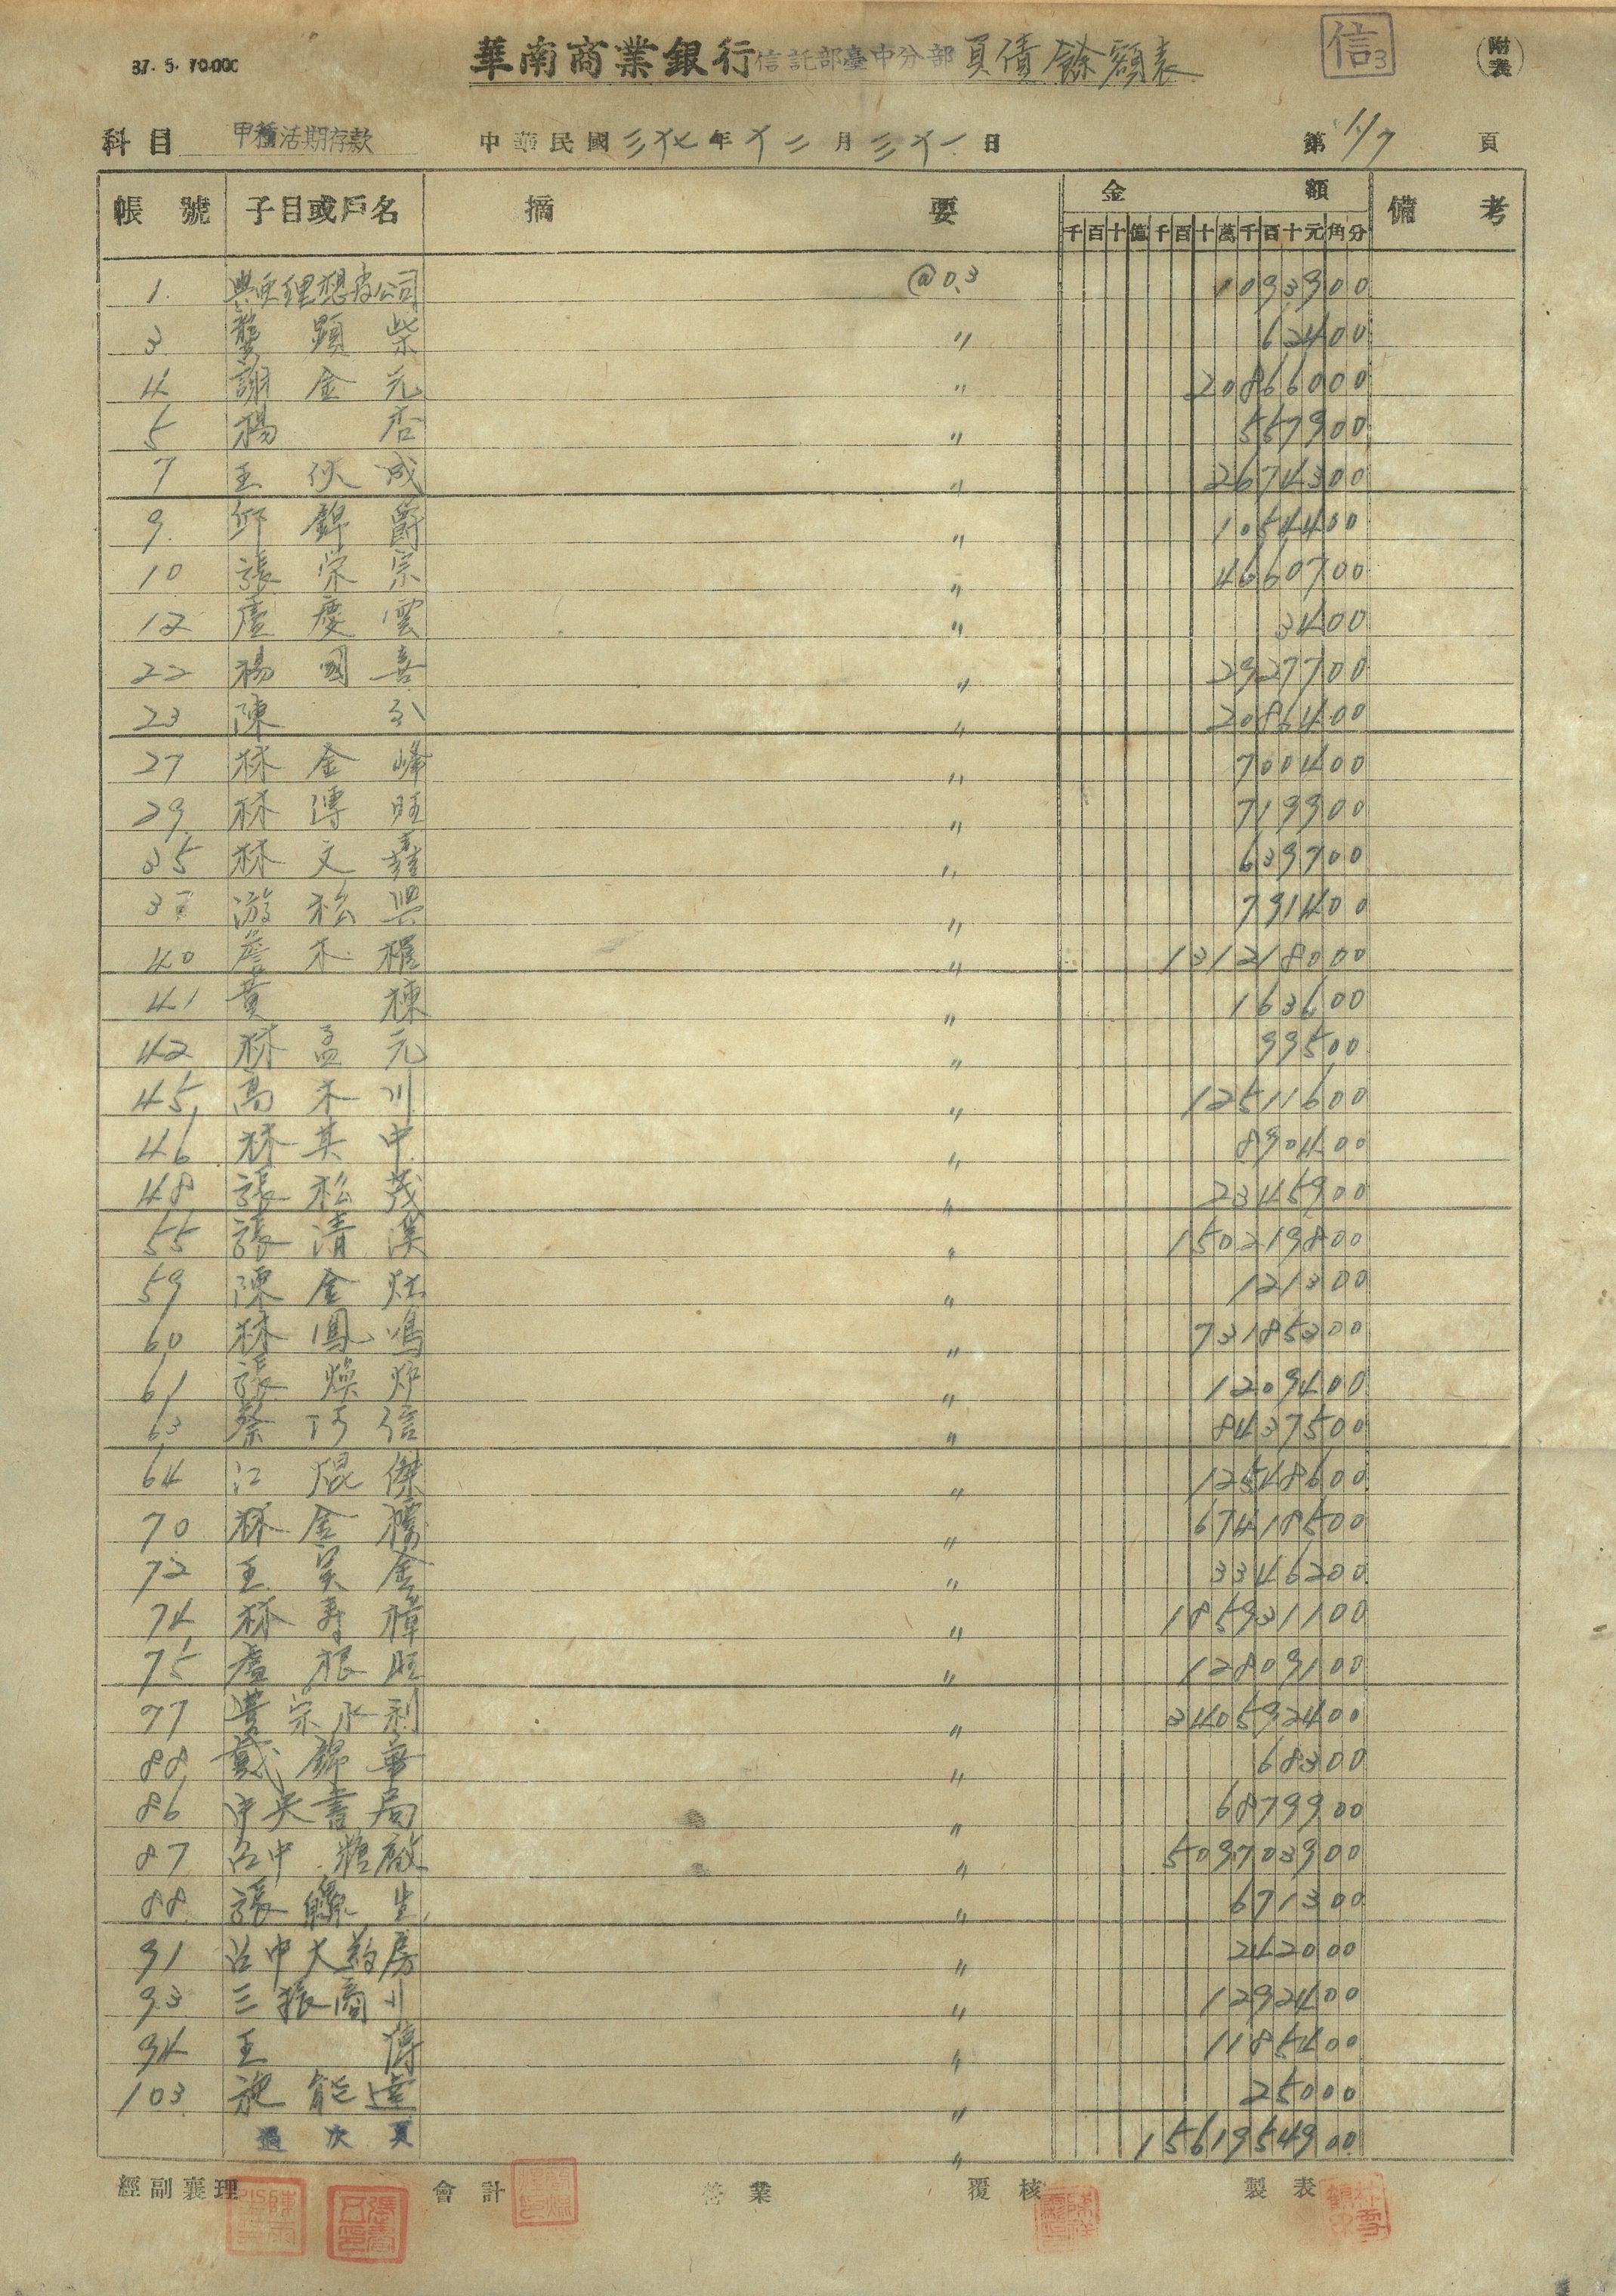 37. 5. 70.000
華南商業銀行信託部臺中分部負債餘額表 信3 (附表)
科目 甲種活期存款 中華民國三十七年十二月三十一日 第1/7頁
帳號 子目或戶名 摘要 金額 備考
千百十億千百十萬千百十元角分
1. 興亜理想皮公司 @0.3 1093900
3 龔顕柴 〃 62400
4 謝金元 〃 20866000
5 楊杏 〃 557900
7 王伙成 〃 2674300
9. 邱錦爵 〃 1054400
10 張栄宗 〃 4660700
12 盧慶雲 〃 3400
22 楊國喜 〃 2927700
23 陳 〃 2086400
27 林金峰 〃 700400
29 林溥旺 〃 719900
35 林文 〃 639700
37 游松興 〃 791400
40 詹木權 〃 131218000
41 黄棟 〃 163600
42 林孟元 〃 99500
45 高木川 〃 12511600
46 林其中 〃 890400
48 張松茂 〃 2345900
55 張清漢 〃 150219800
59 陳金灶 〃 121300
60 林鳳鳴 〃 73185300
61 張煥炉 〃 1209400
63 蔡阿信 〃 8437500
64 江焜傑 〃 12548600
70 林金 〃 67418500
72 王吴金 〃 3346200
74 林寿樟 〃 185931100
75 盧根旺 〃 12809100
77 豊宗水利 〃 340592400
88 戴錦華 〃 68300
86 中央書局 〃 6879900
87 台中糖廠 〃 509703900
88 張聯生 〃 671300
91 台中大葯房 〃 242000
93 三振商行 〃 1292400
94 王傳 〃 1185400
103 施能達 〃 25000
過次頁 〃 1561954900
經副襄理 會計 營業 覆核 製表